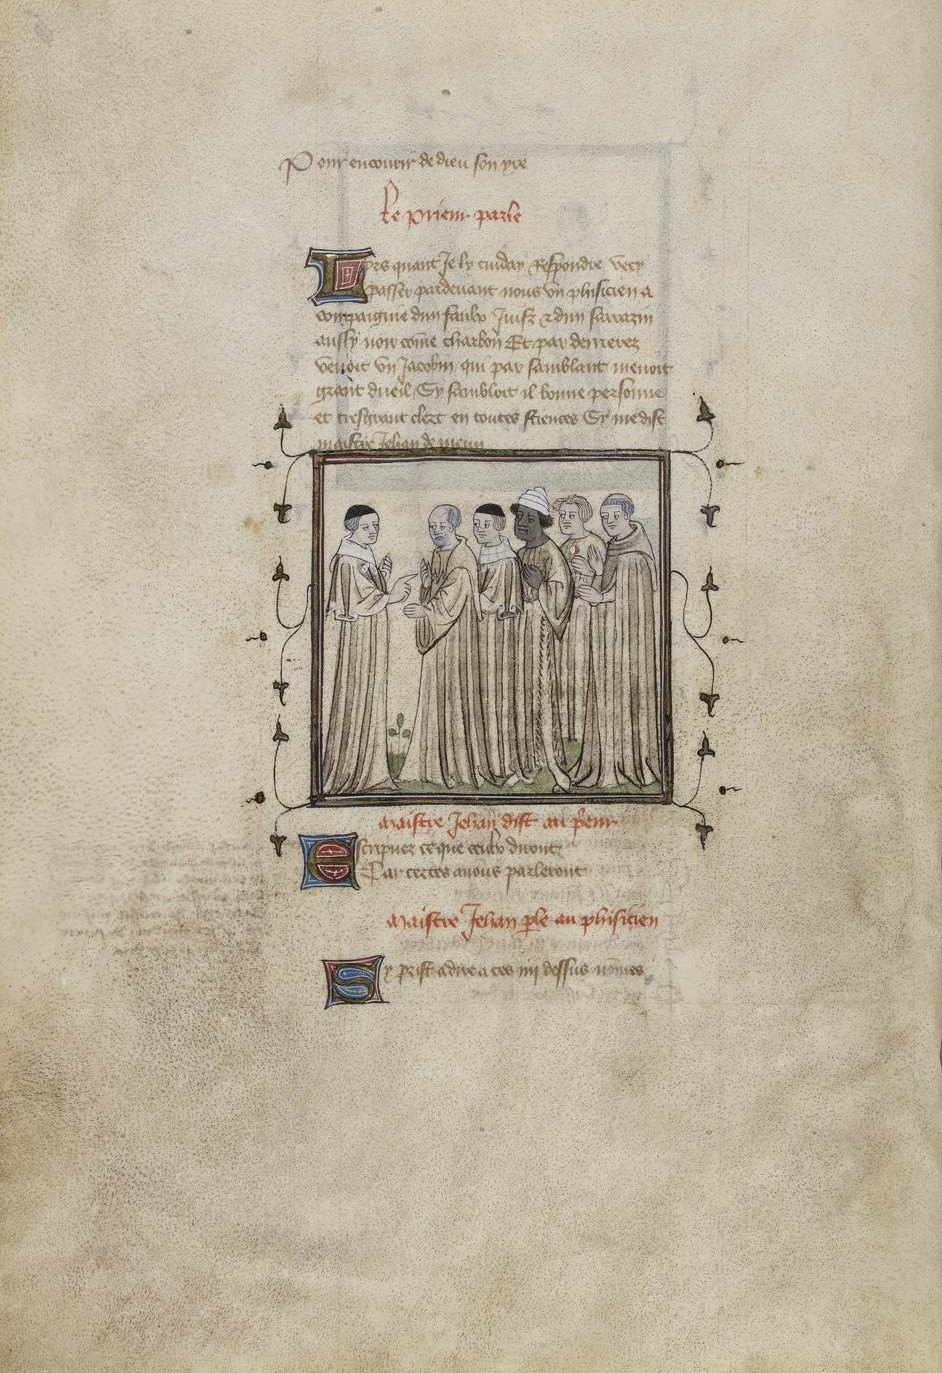 Pour encourir de dieu son yre
Le prieur parle
Lors quant Je ly cuiday Respondre vecy
passer pardevant nous vn phisicien a
compaignie dun faulx Juif & dun sarrazin
aussy noir come charbon Et par derrerez
venoit vn Jacobin qui par samblant menoit
grant dueil Sy sambloit il bonne personne
et tresgrant clerc en toutes sciences Sy me dist
maistre Jehan de meun
maistre Jehan dist au prieur
Escripuez ce que ceulx diront
Car certes a nous parleront
maistre Jehan ple au phisicien
Sy prist a dire a ces iiii dessus nomes